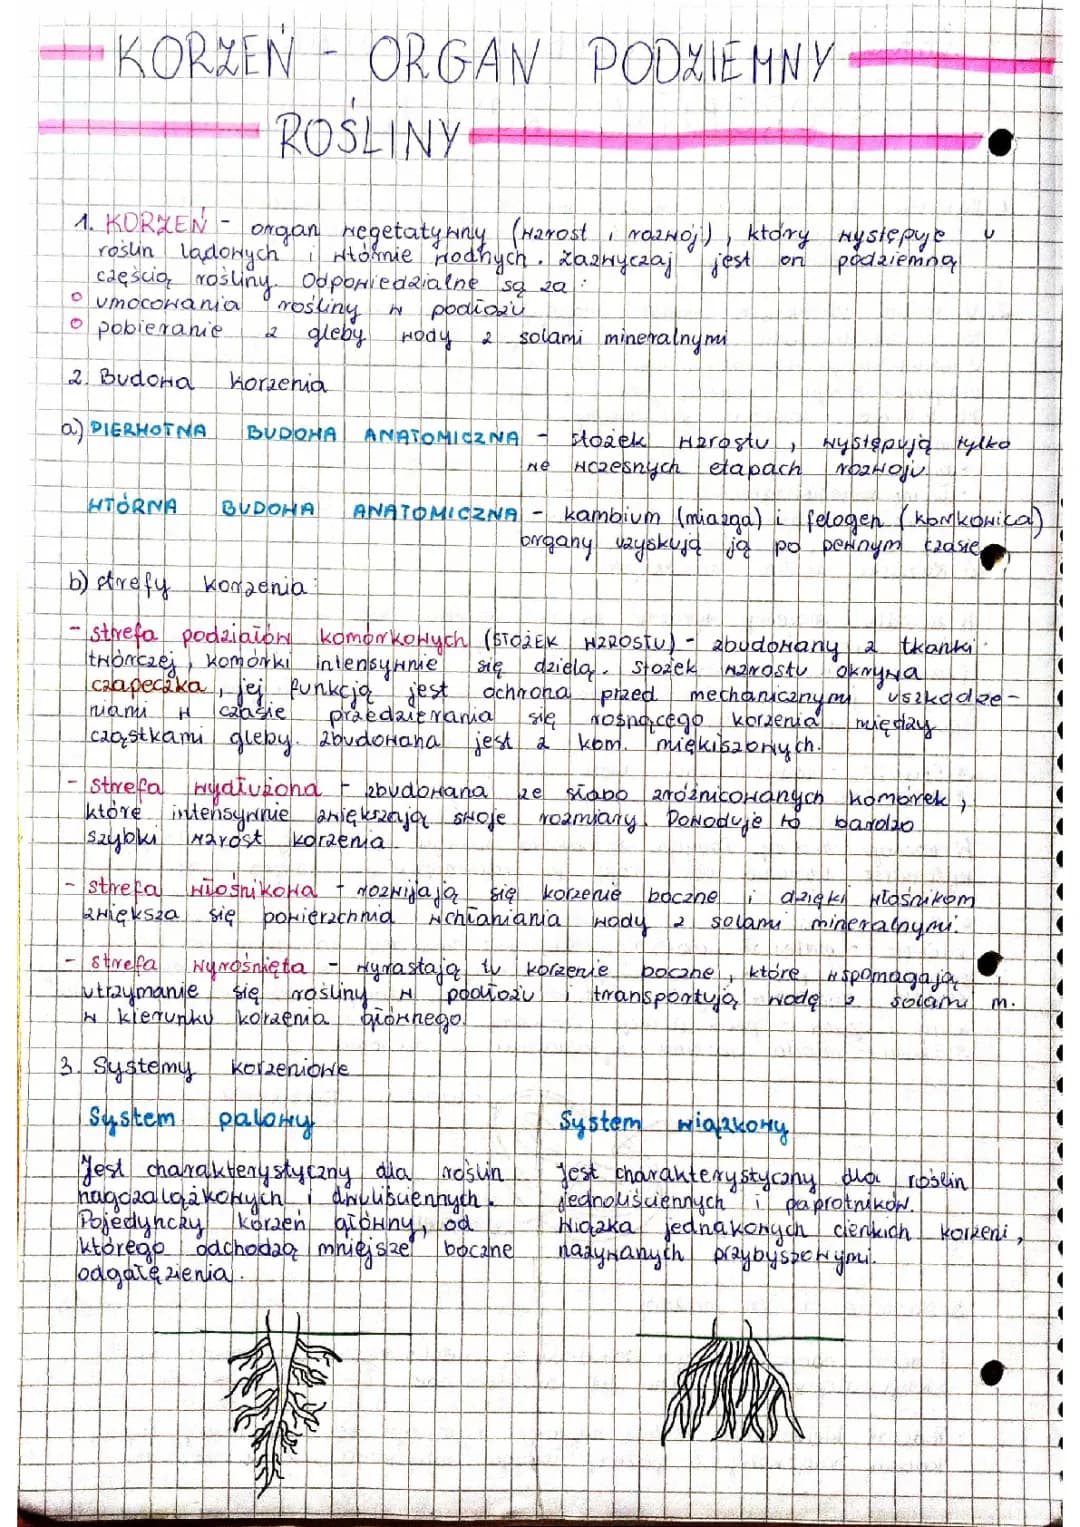 KORZEŃ - ORGAN PODZIEMNY
ROŚLINY
1. KORZEŃ - organ wegetatywny (wzrost i rozwój), który występuje u
roślin lądowych i wtórnie wodnych. Zazwyczaj jest on podziemną
częścią rośliny. Odpowiedzialne są za:
o umocowania rośliny w podłożu
o pobieranie z gleby wody z solami mineralnymi
2. Budowa korzenia
a) PIERWOTNA BUDOWA ANATOMICZNA - stożek wzrostu, występują tylko
we wczesnych etapach rozwoju.
WTÓRNA BUDOWA ANATOMICZNA - kambium (miazga) i felogen (korkowica)
organy uzyskują ją po pewnym czasie
b) strefy korzenia:
- strefa podziałów komórkowych (STOŻEK WZROSTU) - zbudowany z tkanki
twórczej, komórki intensywnie się dzielą. Stożek wzrostu okrywa
czapeczka, jej funkcją jest ochrona przed mechanicznymi uszkodze-
niami w czasie przedzierania się rosnącego korzenia między
cząstkami gleby. Zbudowana jest z kom. miękiszowych.
- strefa wydłużona - zbudowana ze słabo zróżnicowanych komórek,
które intensywnie zwiększają swoje rozmiary. Powoduje to bardzo
szybki wzrost korzenia.
- strefa włośnikowa - rozwijają się korzenie boczne i dzięki włośnikom
zwiększa się powierzchnia wchłaniania wody z solami mineralnymi.
- strefa wyrośnięta - wyrastają tu korzenie boczne, które wspomagają
utrzymanie się rośliny w podłożu i transportują wodę z solami m.
w kierunku korzenia głównego.
3. Systemy korzeniowe
System palowy
Jest charakterystyczny dla roślin
nagozalążkowych i dwuliściennych.
Pojedynczy korzeń główny, od
którego odchodzą mniejsze boczne
odgałęzienia.
System wiązkowy
Jest charakterystyczny dla roślin
jednoliściennych i paprotników.
Wiązka jednakowych cienkich korzeni,
nazywanych przybyszowymi.